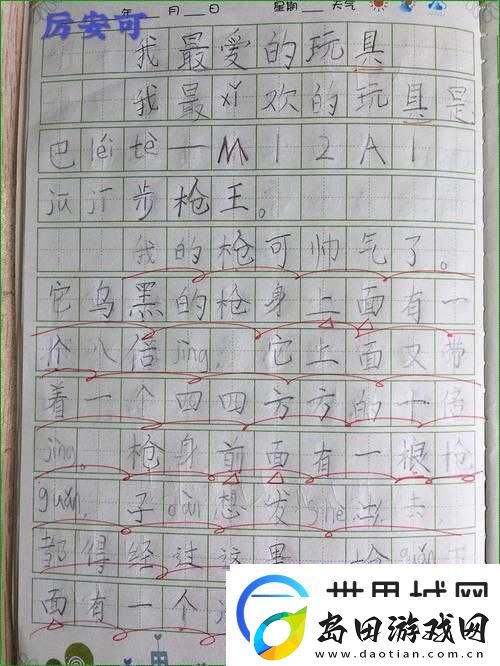 厉安可
年 月 日 星期 天气
我最爱的玩具
我最xǐ欢的玩具是
巴léi tè一M12A1
jū jī步枪王。
我的枪可帅气了。
它乌黑的枪身上面有一
个八倍jìng,它上面又带
着一个四四方方的十倍
jìng。枪身前面有一根枪
guǎn,子dàn想发shè出去,
都得经过这里。枪guǎn
面有一个
世界城网
岛田游戏网
www.daotian.com.cn